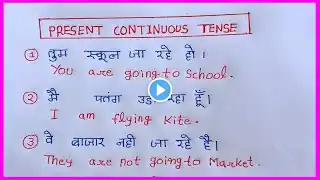 PRESENT CONTINUOUS TENSE
① तुम स्कूल जा रहे हो।
You are going to School.
② मै पतंग उड़ा रहा हूँ।
I am flying Kite.
③ वे बाजार नही जा रहे है।
They are not going to Market.